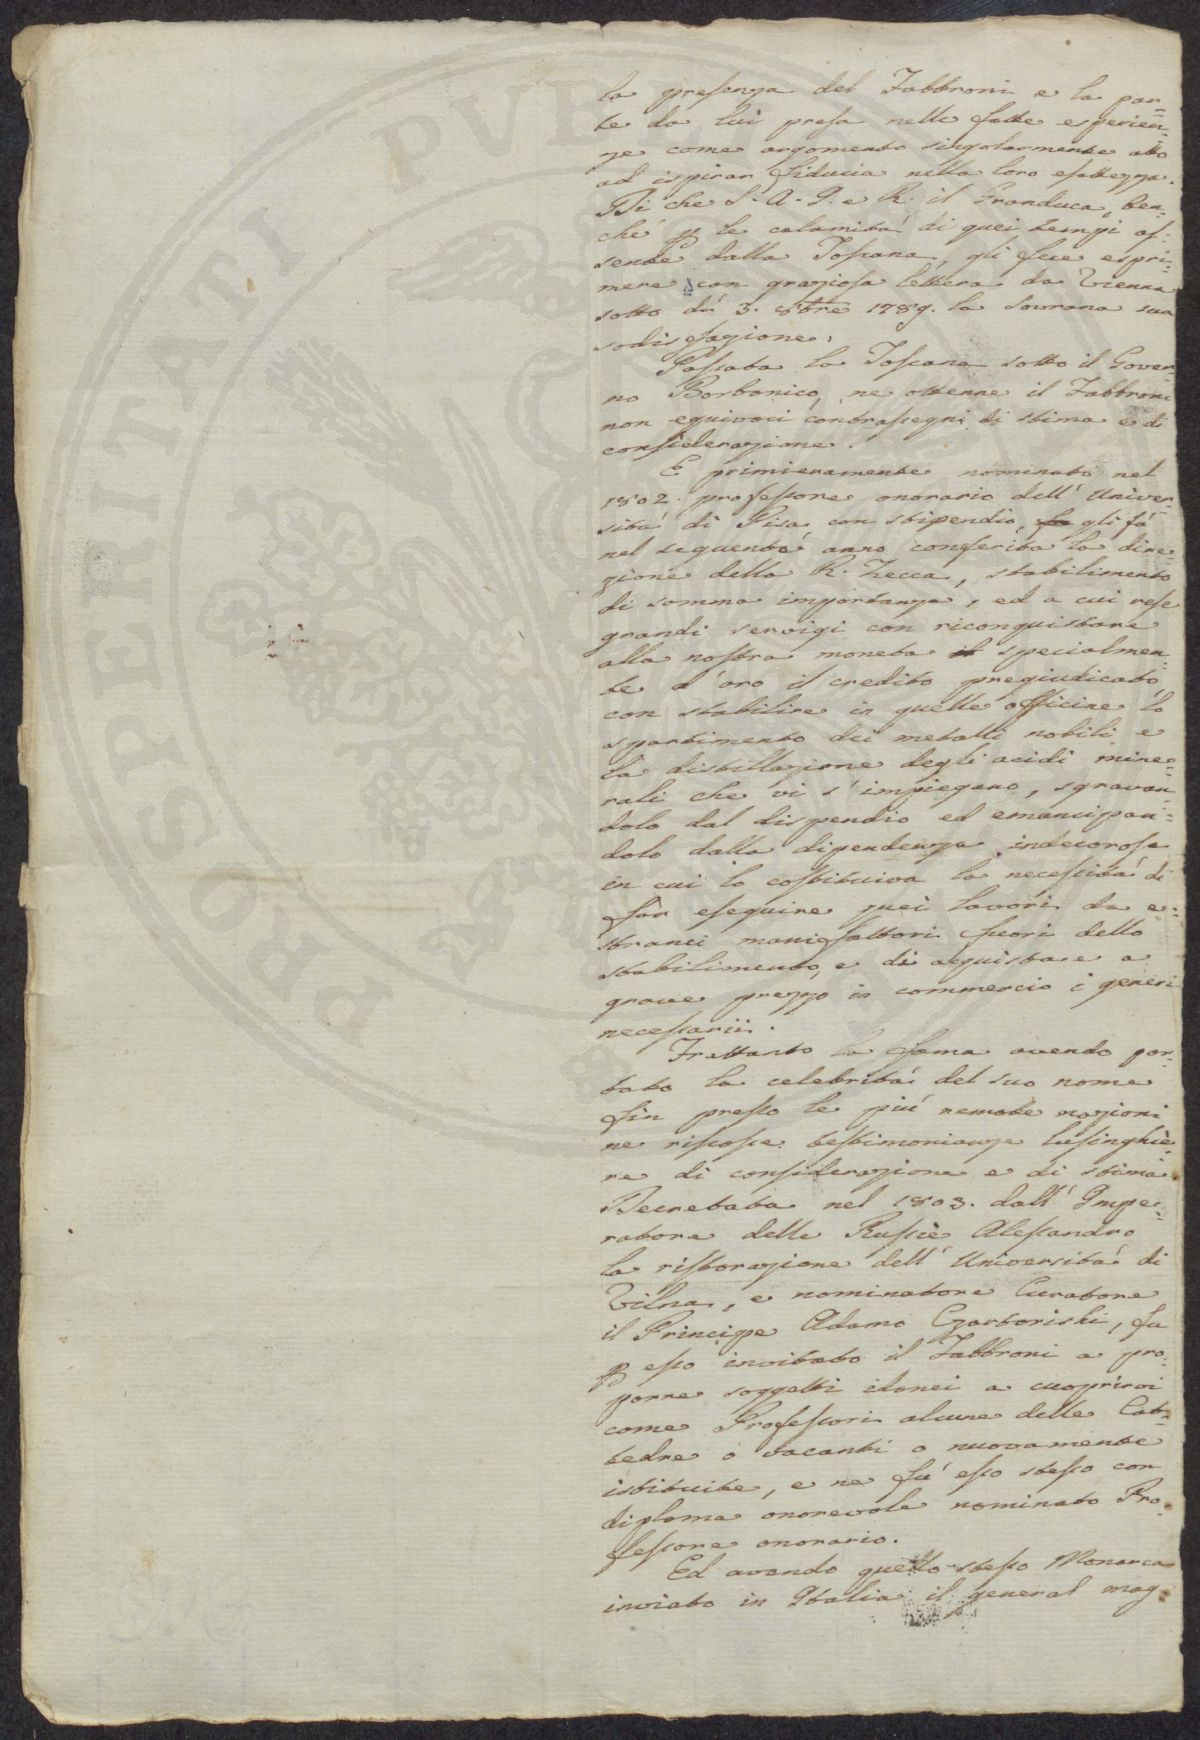 la presenza del Fabbroni e la par-
te da lui presa nelle fatte esperien-
ze come argomento singolarmente atto
ad inspirar fiducia nella loro esattezza.
Di che S. A. I. e R. il Granduca, ben-
ché p le calamità di quei tempi as-
sente dalla Toscana, gli fece espri-
mere con graziosa lettera da Vienna
sotto dì 3. 8bre 1789. la Sovrana sua
sodisfazione.
Passata la Toscana sotto il Gover-
no Borbonico, ne ottenne il Fabbroni
non equivoci contrassegni di stima e di
considerazione.
E primieramente nominato nel
1802. professore onorario dell' Univer-
sità di Pisa con stipendio, gli fù
nel seguente anno conferita la dire-
zione della R. Zecca, stabilimento
di somma importanza, ed a cui rese
grandi servigi con riconquistare
alla nostra moneta specialmen-
te d'oro il credito pregiudicato
con stabilire in quelle officine lo
spartimento dei metalli nobili e
la distillazione degli acidi mine-
rali che vi s'impiegano, sgravan-
dolo dal dispendio ed emancipan-
dolo dalla dipendenza indecorosa
in cui lo costituiva la necessità di
far eseguire quei lavori da e-
stranei manifattori fuori dello
stabilimento, e di acquistare a
grave prezzo in commercio i generi
necessarii.
Frattanto la fama avendo por-
tato la celebrità del suo nome
fin presso le più remote nazioni
ne riscosse testimonianze lusinghie-
re di considerazione e di stima.
Decretata nel 1803. dall' Impe-
ratore delle Russie Alessandro
la ristorazione dell' Università di
Vilna, e nominatore Curatore
il Principe Adamo Czartorishi, fu
p esso invitato il Fabbroni a pro-
porre soggetti idonei a cuoprirvi
come Professori alcune delle Cat-
tedre o vacanti o nuovamente
istituite, e ne fù esso stesso con
diploma onorevole nominato Pro-
fessore onorario.
Ed avendo quello stesso Monarca
inviato in Italia il general mag-
PROSPERITATI PVBL